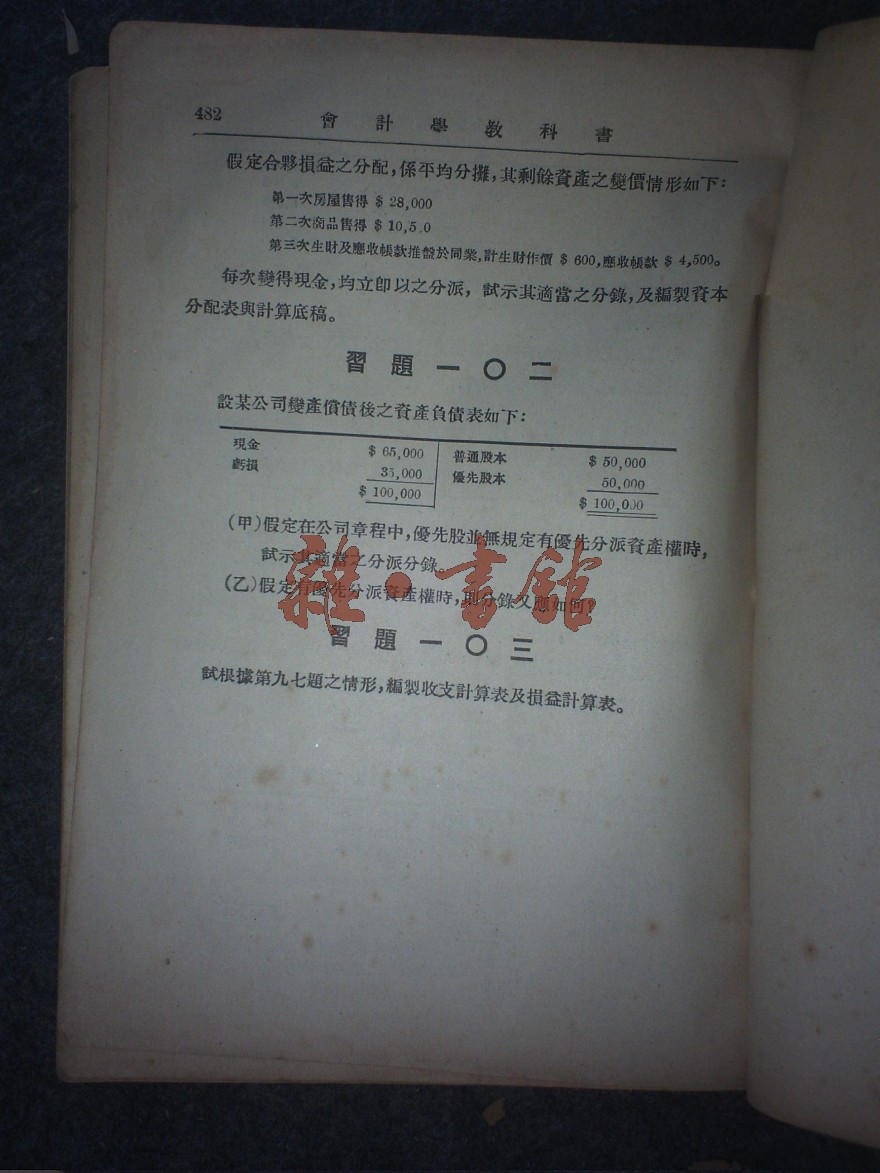 482 會計學教科書
假定合夥損益之分配,係平均分攤,其剩餘資產之變價情形如下:
第一次房屋售得 $ 28,000
第二次商品售得 $ 10,5 0
第三次生財及應收帳款推盤於同業,計生財作價 $ 600,應收帳款 $ 4,500。
每次變得現金,均立卽以之分派,試示其適當之分錄,及編製資本
分配表與計算底稿。
習題一〇二
設某公司變產償債後之資產負債表如下:
現金 $ 65,000 普通股本 $ 50,000
虧損 35,000 優先股本 50,000
$ 100,000 $ 100,000
(甲)假定在公司章程中,優先股並無規定有優先分派資產權時,
試示其適當之分派分錄。
(乙)假定有優先分派資產權時,則分錄又應如何?
雜·書館
習題一〇三
試根據第九七題之情形,編製收支計算表及損益計算表。